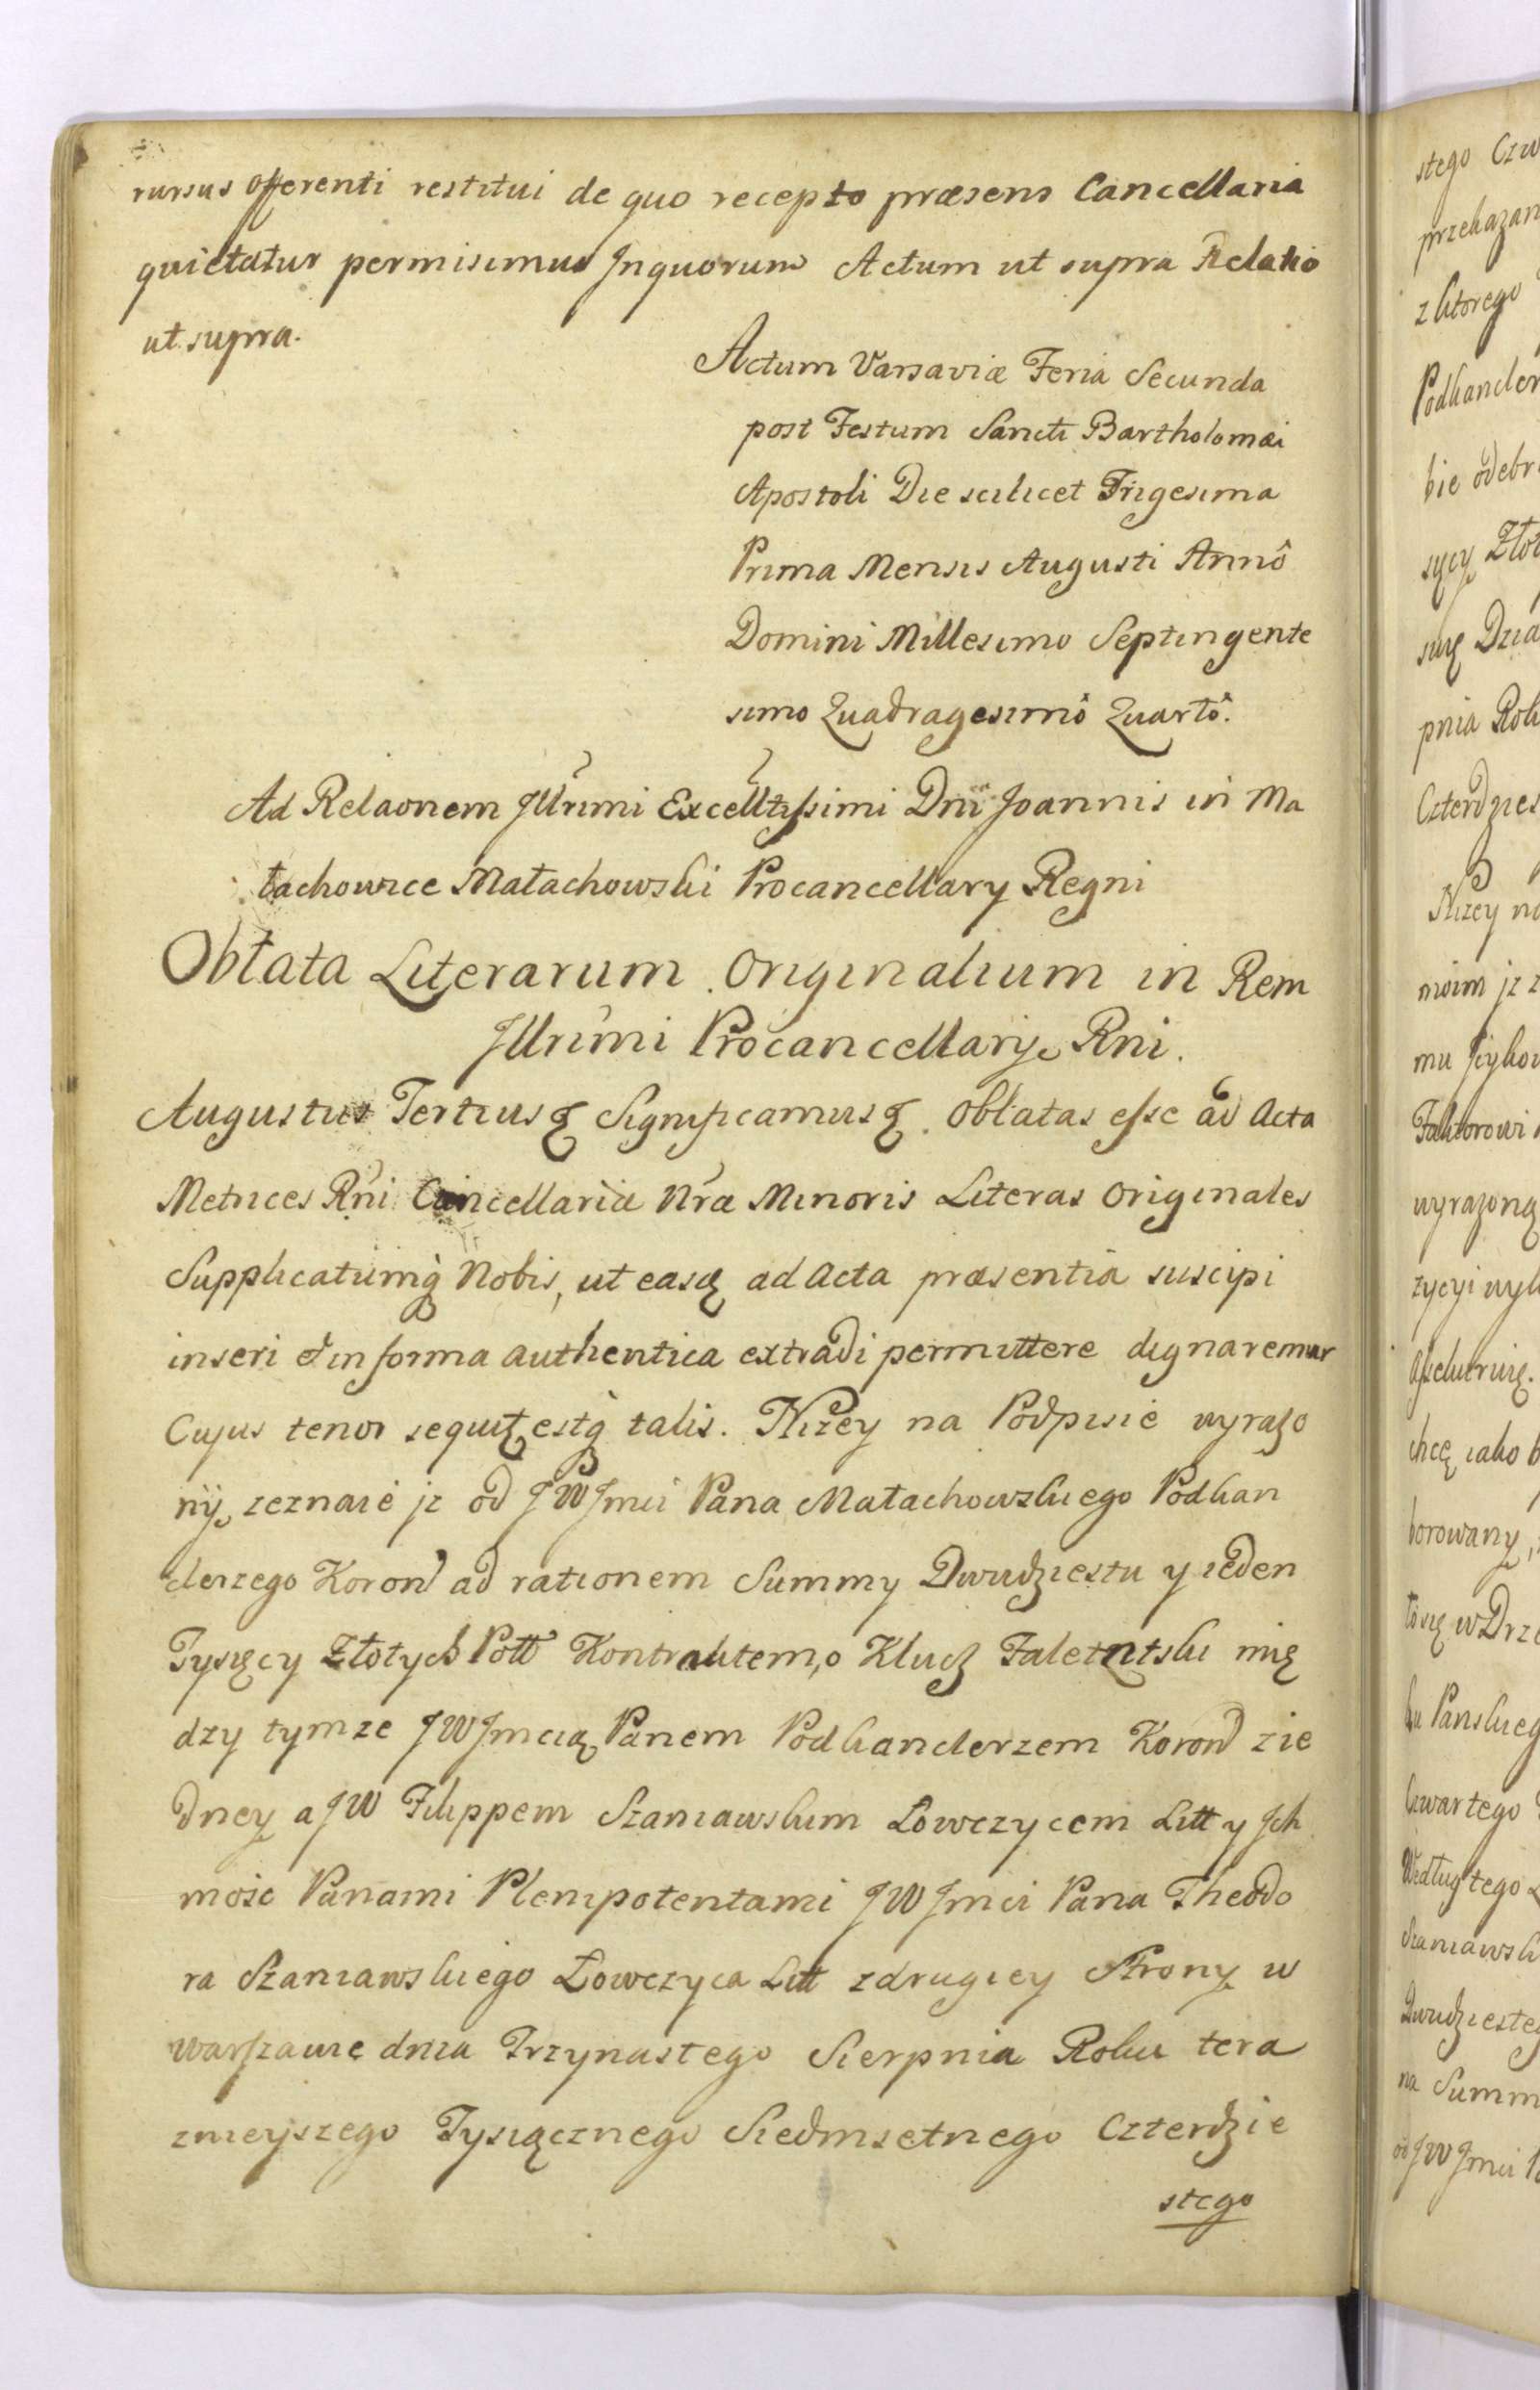 rursus offerenti restitui de quo recepto præsens Cancellaria
quietatur permisimus Jnquorum Actum ut supra Relatio
ut supra.
Actum Varsaviæ Feria Secunda
post Festum Sancti Bartholomæi
Apostoli Die scilicet Trigesima
Prima Mensis Augusti Annô
Domini Millesimo Septingente
simo Quadragesimô Quartô.
Ad Relaonem Jllrimi Excelltissimi Dni Joannis in Ma
łachowice Małachowski Procancellary Regni
Obłata Literarum Originalium in Rem
Jllrimi Procancellarij Rni.
Augustus Tertius ꝫ Significamus ꝫ. Obłatas esse ad Acta
Metrices Rni Cancellariæ Nræ Minoris Literas Originales
Supplicatumq̀ Nobis, ut easdę ad Acta præsentia suscipi
inseri et in forma authentica extradi permittere dignaremur
Cujus tenor sequitę estq̀ talis. Niżey na Podpisie wyrażo
nÿ, zeznaie jż od JW Jmci Pana Małachowskiego Podkan
clerzego Koron ad rationem Summy Dwudziestu y ieden
Tysięcy Złotych Poll Kontraktem, o Klucz Faletntski mię
dzy tymze JW Jmcią Panem Podkanclerzem Koron zie
dney a JW Filippem Szaniawskim Łowczycem Litt y Jch
mość Panami Plenipotentami JW Jmci Pana Theodo
ra Szaniawskiego Łowczyca Litt zdrugiey Strony w
Warszawie dnia Trzynastego Sierpnia Roku tera
znieyszego Tysiącznego Siedmsetnego Czterdzie
stego
stego Czw
przekazan
z ktorego
Podkancler
bie odebr
sięcy Złot
się Dzia
pnia Rok
Czterdzies
Niżey na
moim jż z
mu
Faktorowi
wyrażoną
życyi wyk
chcę iako b
borowany,
w Drze
ku Panskieg
Czwartego
Według tego
Szaniawsk
Dwudziesteg
na Summ
od JW Jmci